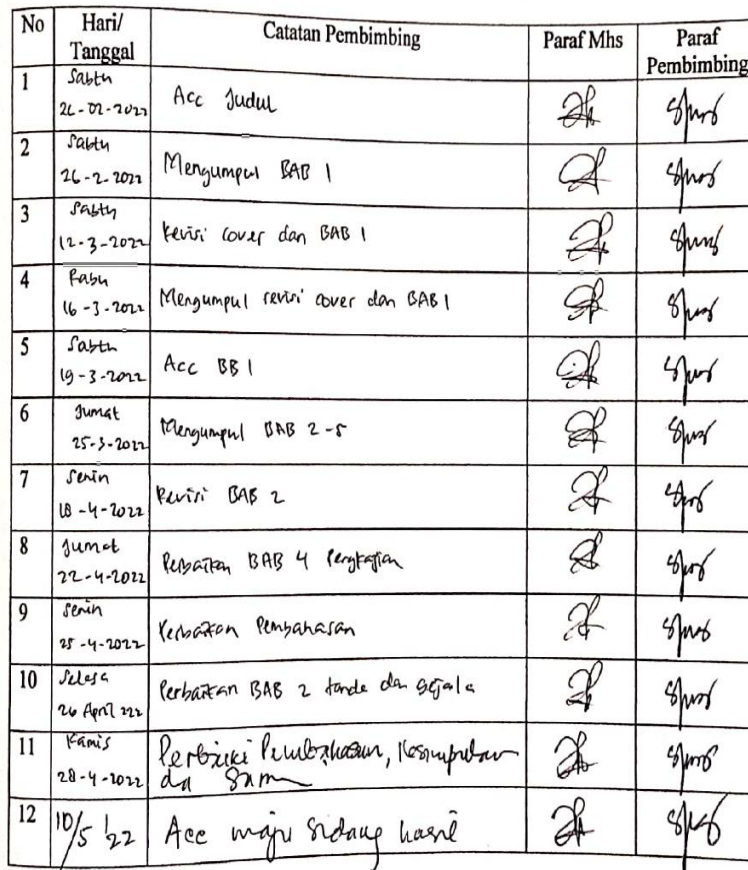 No Hari/ Tanggal Catatan Pembimbing Paraf Mhs Paraf Pembimbing
1 Sabtu 26-02-2022 Acc Judul
2 Sabtu 26-2-2022 Mengumpul BAB 1
3 Sabtu 12-3-2022 Revisi cover dan BAB 1
4 Rabu 16-3-2022 Mengumpul revisi cover dan BAB 1
5 Sabtu 19-3-2022 Acc BB 1
6 Jumat 25-3-2022 Mengumpul BAB 2-5
7 Senin 18-4-2022 Revisi BAB 2
8 Jumat 22-4-2022 Perbaikan BAB 4 Pengkajian
9 Senin 25-4-2022 Perbaikan Pembahasan
10 Selasa 26 April 222 Perbaikan BAB 2 tanda dan gejala
11 Kamis 28-4-2022 Perbaiki Pembahasan, Kesimpulan
da Saran
12 10/5 '22 Acc maju sidang hasil